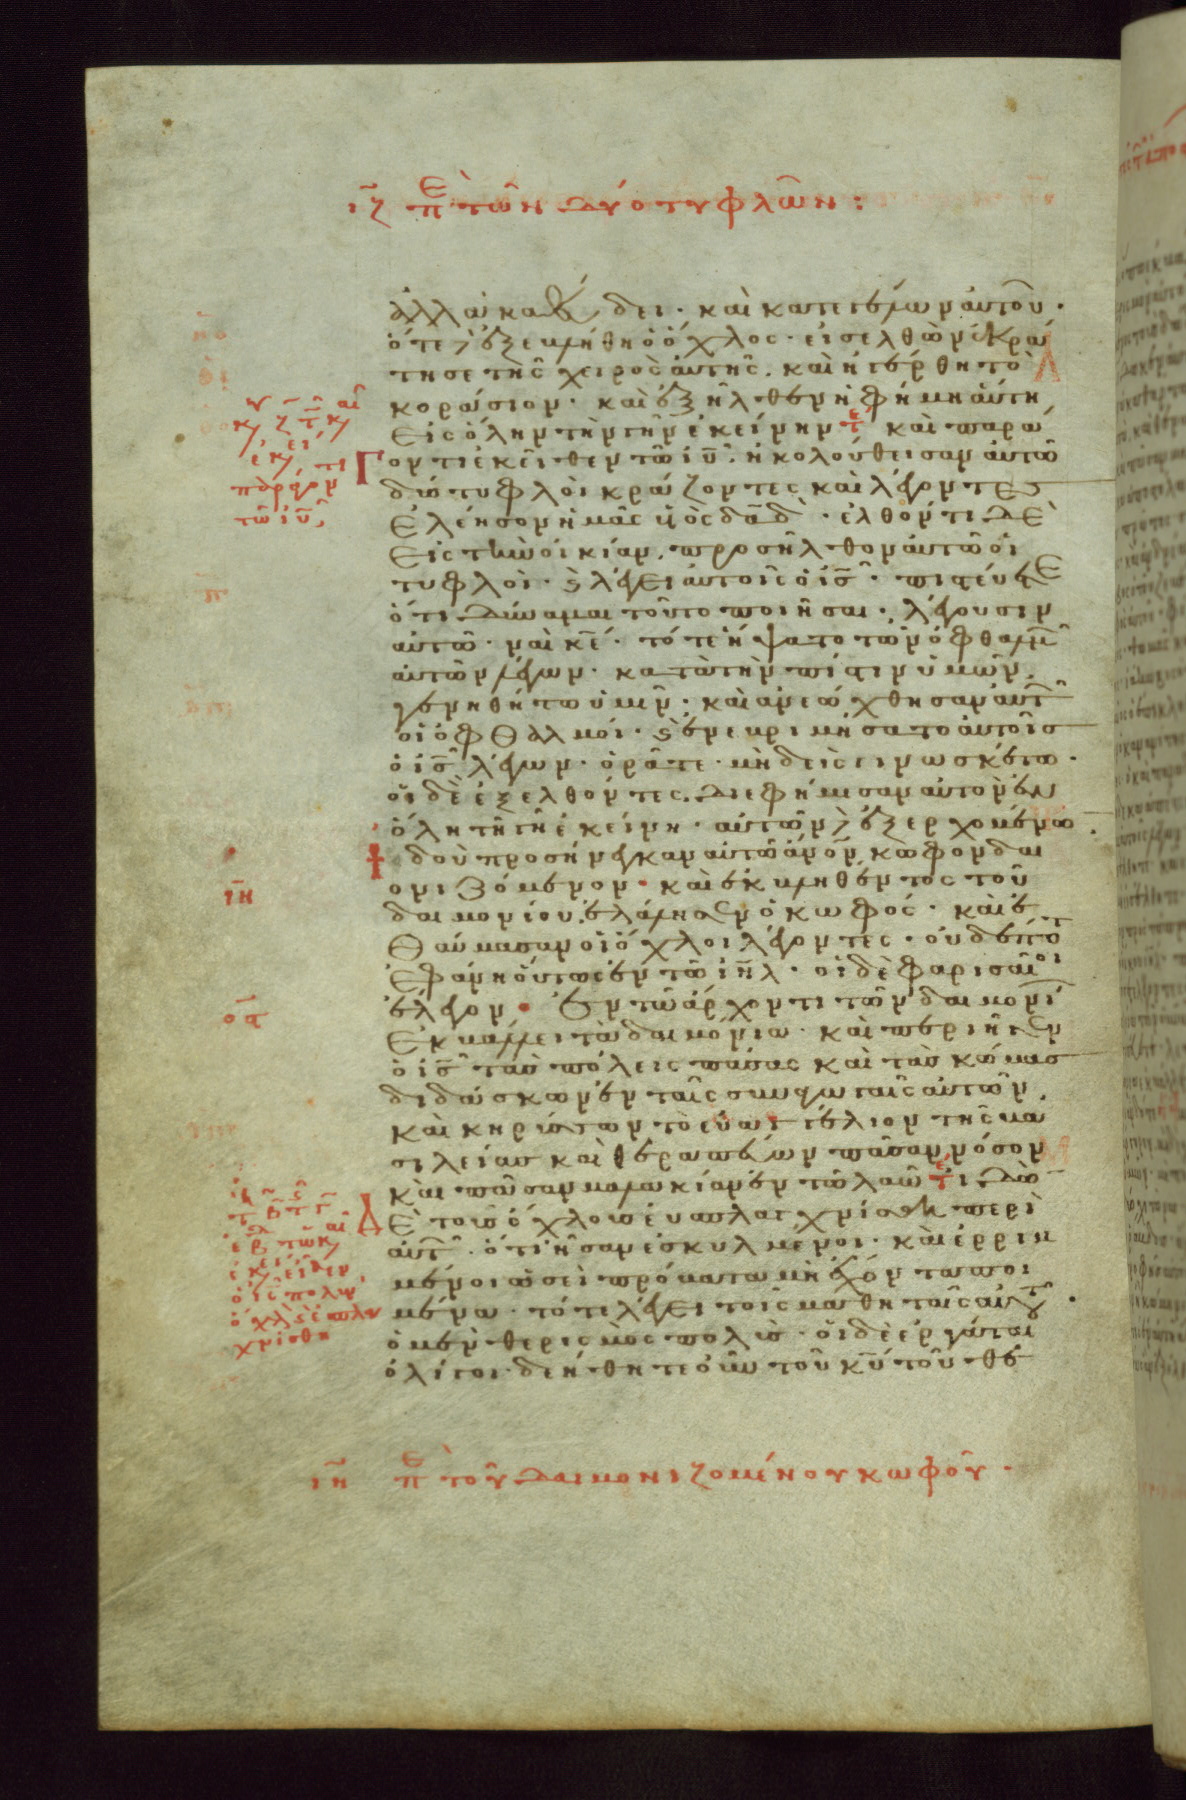 ιζ π̅ε τῶν δύο τυφλῶν:
ἀλλὰ καθεύδει· καὶ κατεγέλων αὐτοῦ·
ὅτε δὲ ἐξεβλήθη ὁ ὄχλος· εἰσελθὼν ἐκρά
τησε τῆς χειρὸς αὐτῆς. καὶ ἠγέρθη τὸ
κοράσιον· καὶ ἐξῆλθεν ἡ φήμη αὕτη
εἰς ὅλην τὴν γῆν ἐκείνην τε καὶ παρά
γοντι ἐκεῖθεν τῶ ιυ̅. ἠκολούθησαν αὐτῶ
δύο τυφλοὶ κράζοντες καὶ λέγοντες
ἐλέησον ἡμᾶς υἱὸς δα̅δ· ἐλθόντι δὲ
εἰς τὴν οἰκίαν. προσῆλθον αὐτῶ οἱ
τυφλοὶ· καὶ λέγει αὐτοῖς ὁ ις̅· πιστεύετε
ὅτι δύναμαι τοῦτο ποιῆσαι· λέγουσιν
αὐτῶ· ναὶ κε̅· τότε ἥψατο τῶν ὀφθαλμ
αὐτῶν λέγων· κατὰ τὴν πίστιν ὑμῶν
γενηθήτω ὑμῖν· καὶ ἀνεώχθησαν αὐτ
οἱ ὀφθαλμοί· καὶ ἐνεβριμήσατο αὐτοῖς
ὁ ις̅ λέγων· ὁρᾶτε· μηδεὶς γινωσκέτω·
οἱ δὲ ἐξελθόντες. διεφήμισαν αὐτὸν ἐν
ὅλη τῆ γῆ ἐκείνη· αὐτῶν δὲ ἐξερχομένω
ἰδοὺ προσήνεγκαν αὐτῶ ἄνον̅ κωφὸν δαι
μονιζόμενον· καὶ ἐκβληθέντος τοῦ
δαιμονίου. ἐλάλησεν ὁ κωφός· καὶ ἐ
θαύμασαν οἱ ὄχλοι λέγοντες· οὐδέποτ
ἐφάνη οὕτως ἐν τῶ ιηλ̅· οἱ δὲ φαρισαῖοι
ἔλεγον· ἐν τῶ ἄρχοντι τῶν δαιμονί
ἐκβάλλει τὰ δαιμόνια· καὶ περιῆγεν
ὁ ις̅ τὰς πόλεις πάσας καὶ τὰς κώμας
διδάσκων ἐν ταῖς συναγωγαῖς αὐτῶν
καὶ κηρύσσων τὸ εὐαγγέλιον τῆς βα
σιλείας καὶ θεραπεύων πᾶσαν νόσον
καὶ πᾶσαν μαλακίαν ἐν τῶ λαῶ ἰδὼν
δὲ τοὺς ὄχλους ἐσπλαγχνίσθη περὶ
αὐτ· ὅτι ἦσαν ἐσκυλμένοι· καὶ ἐρριμ
μένοι ὡσεὶ πρόβατα μὴ ἔχοντα ποι
μένα· τότε λέγει τοῖς μαθηταῖς αὐτοῦ·
ὁ μὲν θερισμὸς πολύς· οἱ δὲ ἐργάται
ὀλίγοι. δεήθητε οὖν τοῦ κυ̅ τοῦ θε
ιη̅
ιη̅ π̅ε τοῦ δαιμονιζομένου κωφοῦ·